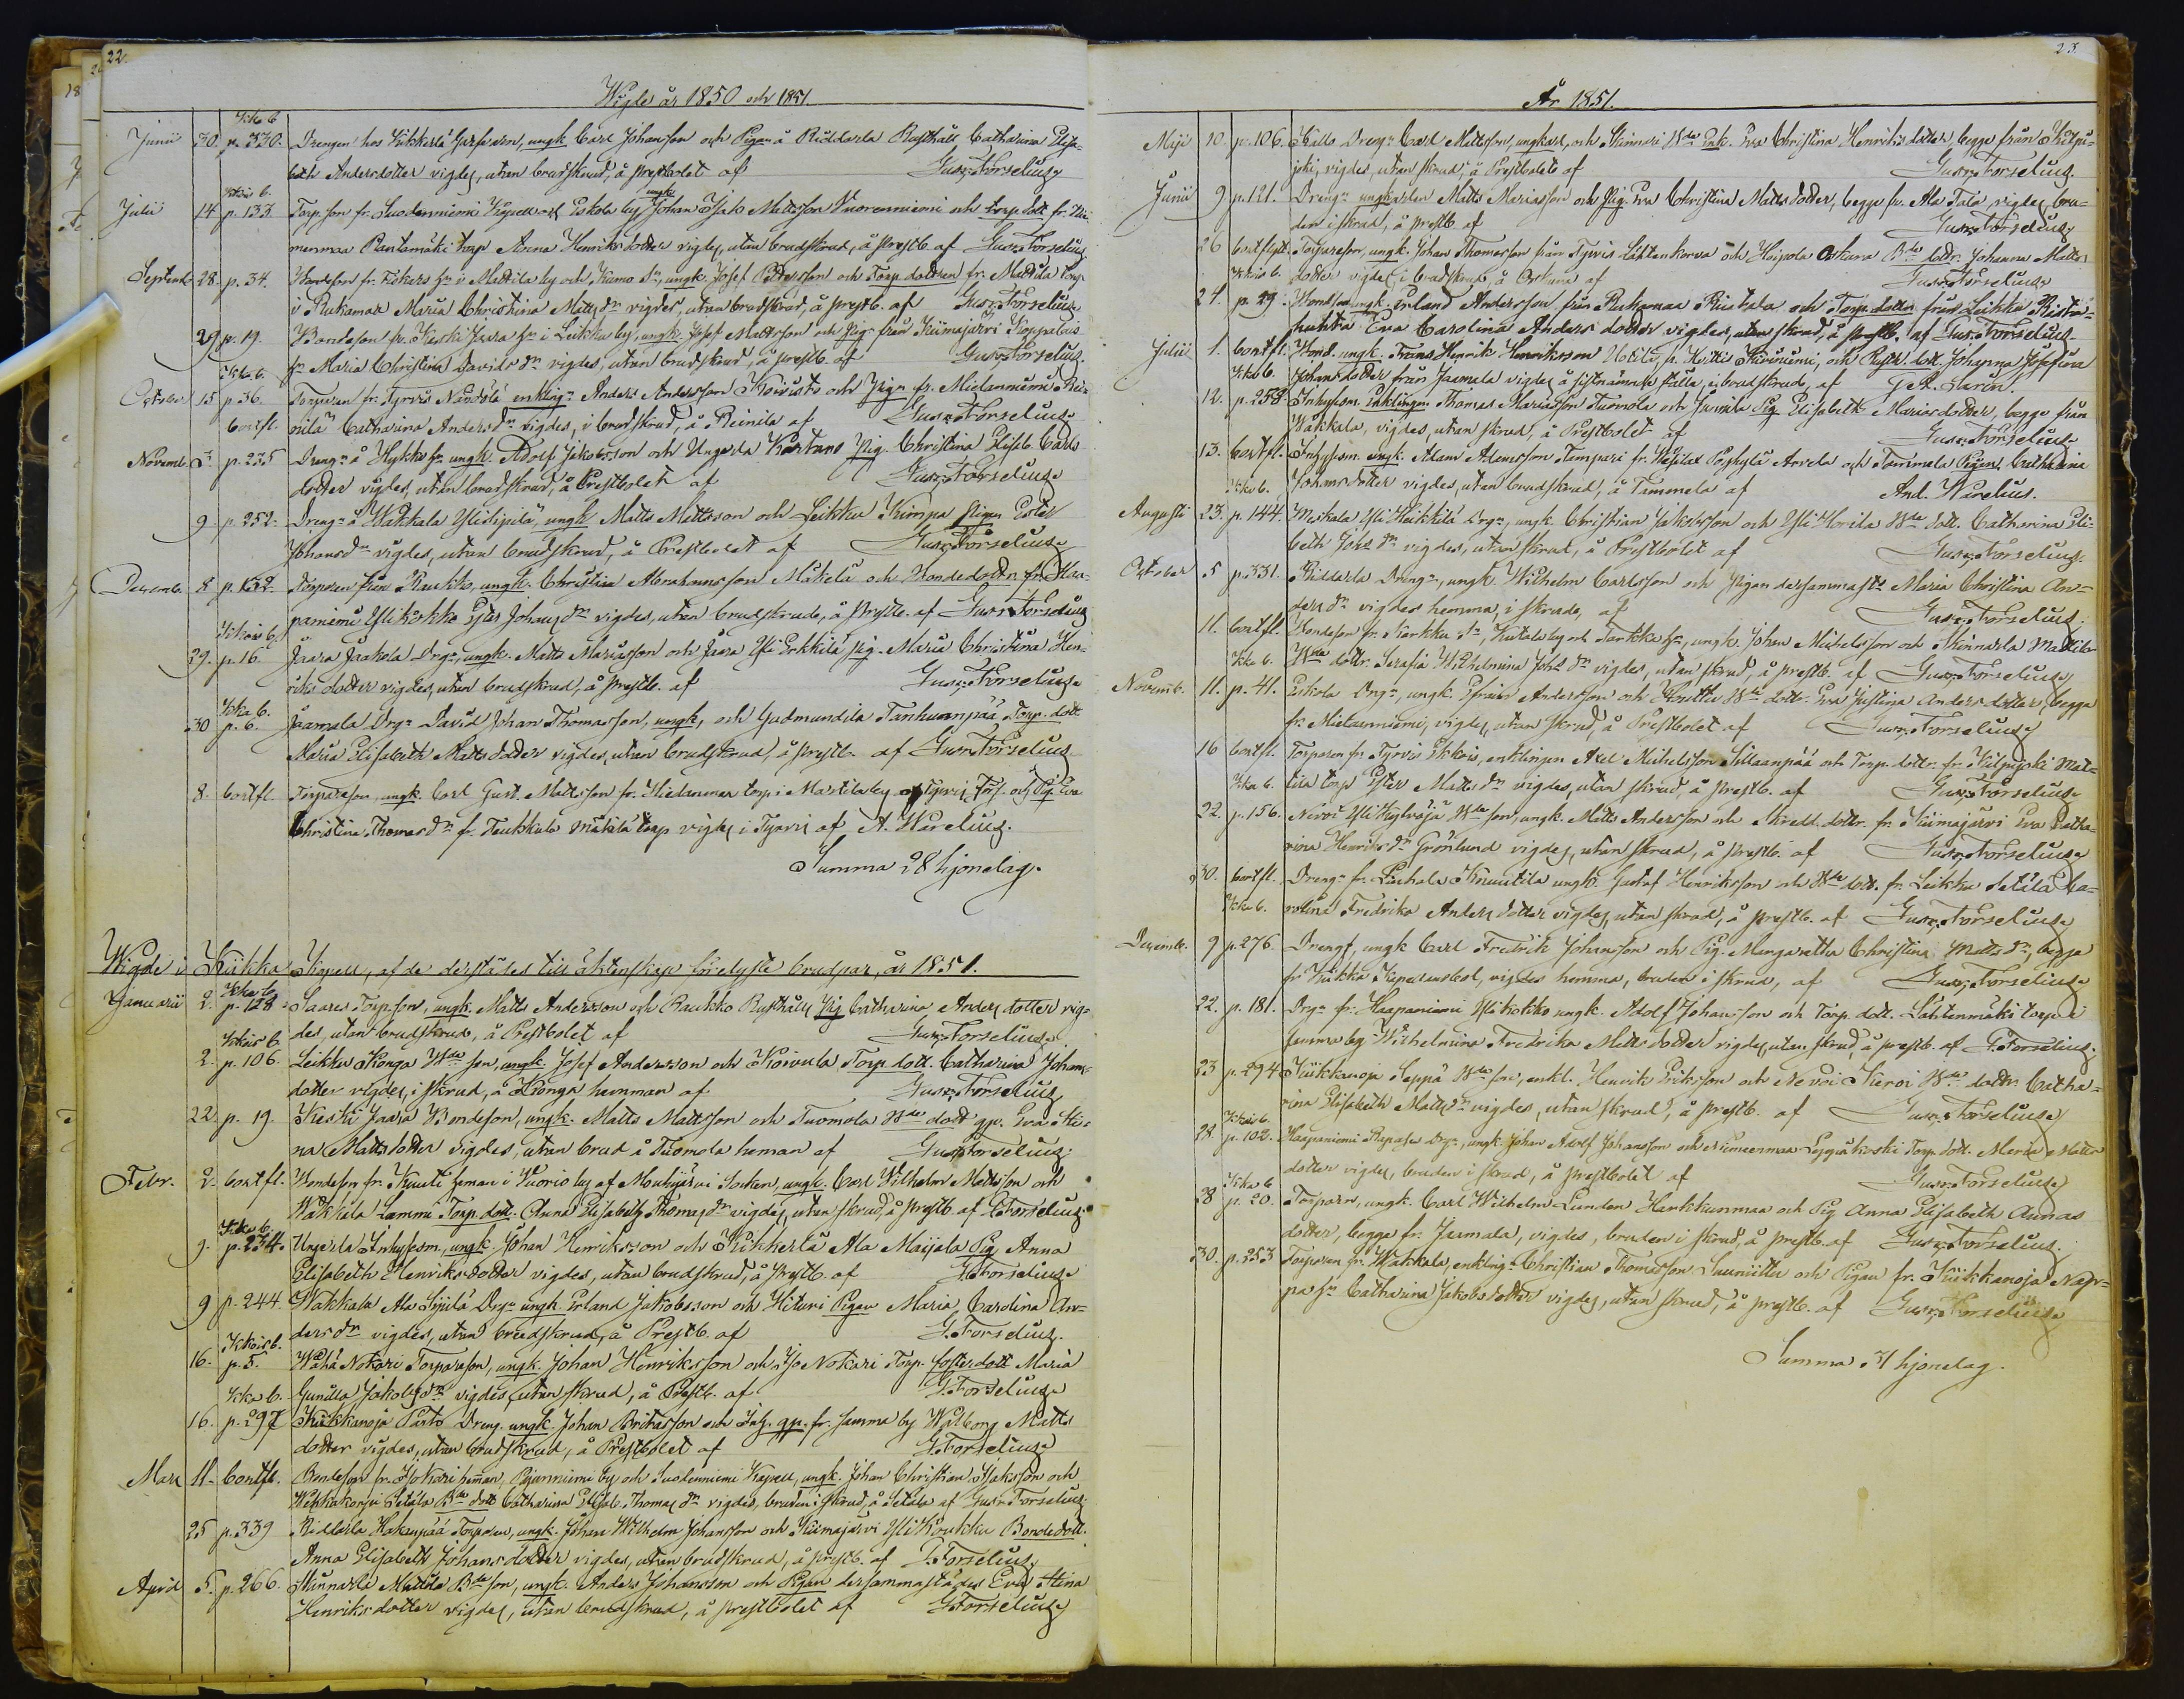 22.
Wigde år 1850 och 1851.
Kika 6
Junii 30. p. 320. Drengen hos Kikkerlä ungk. Carl Johansson och Pigan å Riddarla Rusthåll Catharina Elisa-
beth Andersdotter vigdes, utan brudskrud, å prestbolet af Gust. Forselius
Julii 14 p. 133 Torp.son fr. Suodenniemi Kapell och Eskola by ungk. Johan Isak Mattsson Vuorenniemi och torp. dott. fr.
menmaa Rantamäki torp Anna Henriksdotter vigdes, utan brudskrud, å prestb. af Gust. Forselius
Septemb. 28. p. 34. Bondeson fr. i Mattila by och Kumo Sn, ungk. Josef Pettersson och Torp. dottren fr. Mattila torp
i Ruhamaa Maria Christina Matts dr vigdes, utan brudskrud, å prestb. af Gust. Forselius
29 p. 19. Bondeson fr. Keski Jaara hn i Leikku by, ungk. Josef Mattsson och Pig. från Kiimajärvi
hn Maria Christina Davids dr vigdes, utan brudskrud, å prestb. af Gust. Forselius.
Kika 6.
October 15 p. 36. Torparen fr. Tyrvis enkling. Anders Andersson Koivisto och Pign fr. Mielanniemi Rei-
bortfl. nilä Catharina Anders dr vigdes, i brudskrud, å Reinila af Gust. Forselius
Novemb. 3. p. 235 Drengn å Hykko hn ungk. Adolf Jakobsson och Ungerla Pig. Christina Elisab. Carls
dotter vigdes, utan brudskrud, å Prestbolet af Gust. Forselius
9. p. 252. Drengn å Wakkala Ylisipilä, ungk. Matts Mattsson och Leikku Kimpa Pigan Ester
Johans dr vigdes, utan brudskrud, å Prestbolet af Gust. Forselius
Decemb. 8 p. 122. Torparen från Raukko, ungk. Christian Abrahamsson Mäkelä och Bondedottr. fr. Haa-
paniemi Ylikokko Ester Johans dr vigdes, utan brudskrud, å Prestb. af Gust. Forselius
29. p. 16. Jaara Jaakola Drgn, ungk. Matts Mariasson och Jaara Yli Erkkilä Pig. Maria Christina Hen-
riks dotter vigdes, utan brudskrud, å prestb. af Gust. Forselius
Kika 6.
30 p. 6. Jaamala Drgn David Johan Thomasson, ungk. och Gudmundila Tanhuanpää Torp. dott.
Maria Elisabeth Matts dotter vigdes, utan brudskrud, å prestb. af Gust. Forselius
8. bortfl. Torpareson, ungk. Carl Gust. Mattsson fr. Hiedanmaa torp i Martila by af Tyrvis och Pig Eva
Christina Thomas dr fr. Teukkula Mäkilä torp vigdes i Tyrvis af A. Warelius.
Summa 28 hjonelag.
Wigde i Kiikka Kapell, af de derstädes till äktenskap brudpar, år 1851.
Januarii 2. p. 128. Saares Torp.son, ungk. Matts Andersson och Raukko Rusthålls Pig Catharina Anders dotter vig-
des, utan brudskrud, å Prestbolet af Gust. Forselius.
2. p. 106. Leikku Konga Bde son, ungk. Josef Andersson och Koivula Torp. dott. Catharina Johans
dotter vigdes, i skrud, å Konga hemman af Gust. Forselius
22. p. 19. Keski Jaara Bondeson, ungk. Matts Mattsson och Tuomola Bde dott qp. Eva Sti-
na Matts dotter vigdes, utan brud å Tuomola heman af Gust. Forselius
Febr. 2. bortfl. Bondeson fr. Knuuti heman i Vuorio by af Mouhijärvi Socken, ungk. Carl Wilhelm Mattsson och
Wakkala Lammi Torp. dott. Anna Elisabeth Thomas dr vigdes, utan skrud, å prestb. af G. Forselius
Kika 6.
9. p. 234. Ungerla Inhysesm., ungk. Johan Henriksson och Kikkerlä Ala Maijala Pig. Anna
Elisabeth Henriksdotter vigdes, utan brudskrud, å Prestb. af G. Forselius
9 p. 244. Wakkala Ala Sipilä Drgn ungk. Erland Jakobsson och Kituri Pigan Maria Carolina An-
ders dr vigdes, utan brudskrud, å Prestb. af G. Forselius.
16. p. 5. Wähä Nokari Torpareson, ungk. Johan Henriksson och Iso Nokari Torp. fosterdott. Maria
Kika 6. Gunilla Jakobs dr vigdes, utan skrud, å Prestb. af G. Forselius
16. p. 297 Kiikkanoja Parto Dreng. ungk. Johan Britasson och Inh. qp. fr. samma by Walborg Matts
dotter vigdes, utan brudskrud, å Prestbolet af G. Forselius
Mars 11. bortfl. Bondeson fr. heman, by och Suodenniemi Kapell, ungk. Johan Christian Isaksson och
Setälä Bde dott Catharina Elisab. Thomas dr vigdes, bruden i skrud, å Setälä af Gust. Forselius.
25 p. 339 Ridderla Hakanpää Torparen, ungk. Johan Wilhelm Johansson och Kiimajärvi Yli Kouhku Bondedott.
Anna Elisabeth Johans dotter vigdes, utan brudskrud, å prestb. af G. Forselius
April 5. p. 266. Kinnarla Mattila Bde son, ungk. Anders Johansson och Pigan dersammastädes Eva Stina
Henriks dotter vigdes, utan brudskrud, å prestbolet af G. Forselius
23.
År 1851.
Maji 10. p. 106. Drengn Carl Mattsson, ungkarl, och Bde Enk. Eva Christina Henriksdotter, begge från Kilpi-
joki, vigdes, utan skrud, å Prestbolet af Gust. Forselius.
Junii 9 p. 121. Drengn ungkarlen Matts Mariasson och Pig. Eva Christina Matts dotter, begge fr. Ala Talo vigdes, bru-
den i skrud, å prestb. af Gust. Forselius
26 bortflytt. Torpareson, ungk. Johan Thomasson från Tyrvis Lähteenkorva och Heipola Oskara Bde dottr. Johanna Matts
dotter vigdes i brudskrud å Oskara af Gust. Forselius
24. p. 29. Bondson ungk. Erland Andersson från Ruhamaa Riistala och Torp. dottren från Leikku Risto-
huhta Eva Carolina Anders dotter vigdes, utan skrud, å prestb. af Gust. Forselius
Julii 1. bortfl. Bond. ungk. Frans Henrik Henriksson Uotila, p. och Rusth. dott. Johanna Josefina
Kika 6. Johans dotter från Jaamala vigdes å sistnämnda ställe, i brudskrud, af G. A. Clarin.
12. p. 258 Inhysesm. Enklingen Thomas Mariasson Tuomola och Jumila Pig Elisabeth Mariasdotter, begge från
Wakkala, vigdes, utan skrud, å Prestbolet af Gust. Forselius
13. bortfl. Inhysesm. ungk. Adam Adamsson Tampari fr. Arvela och Tammela Pigan Catharina
Kika 6. Johansdotter vigdes, utan brudskrud, å Tammela af And. Warelius.
Augusti 23. p. 144. Meskala Yli Heikkilä Drgn, ungk. Christian Jakobsson och Yli Horila Bde dott. Catharina Eli-
beth Joh:s dr vigdes, utan skrud, å Prestbolet af Gust. Forselius.
October 5 p. 331. Riddarla Drengn, ungk. Wilhelm Carlsson och Pigan dersammast: Maria Christina An-
ders dr vigdes hemma, i skrud, af Gust. Forselius
11. bortfl. Bondeson fr. Karkku Sn, by och hn, ungk. Johan Michelsson och Kinnarla Mattila
Kika 6. Bde dottr. Serafia Wilhelmina Joh:s dr vigdes, utan skrud, å prestb. af Gust. Forselius
Novemb. 11. p. 41. Eskola Drgn, ungk. Efraim Andersson och Knutti Bde dott. Eva Justina Anders dotter, begge
fr. Mielanniemi, vigdes, utan skrud, å Prestbolet af Gust. Forselius
16 bortfl. Torparen fr. Tyrvis Ekkois, enklingen Axel Michelsson Sillaanpää och Torp. dottr. fr. Kilpijoki Mat-
Kika 6. tila torp Ester Matts dr vigdes, utan skrud, å prestb. af Gust. Forselius
22. p. 156. Nivoi Yli Kylväjä Bde son, ungk. Matts Andersson och Skredd. dottr. fr. Kiimajärvi Eva Catha-
rina Henriks dr Grönlund vigdes, utan skrud, å prestb. af Gust. Forselius
30. bortfl. Drengn fr. Liuhala Knuutila ungk. Gustaf Henriksson och Bde dott. fr. Leikku Setälä Ca-
Kika 6. rolina Fredrika Anders dotter vigdes, utan skrud, å prestb. af Gust. Forselius
Decemb. 9 p. 276. Dreng, ungk Carl Fredrik Johansson och Pig. Margaretha Christina Matts dr, begge
fr Kiikka Kapellansbol, vigdes hemma, bruden i skrud, af Gust. Forselius
22. p. 181. Drgn fr. Haapaniemi Yli Kokko ungk. Adolf Johansson och Torp. dott. Lähteenmäki torp i
samma by Wilhelmina Fredrika Matts dotter vigdes, utan skrud, å prestb. af G. Forselius.
23 p. 294 Kiikkanoja Seppä Bde son, enkl. Henrik Eriksson och Nevoi Kieroi Bde dottr. Catha-
rina Elisabeth Matts dr vigdes, utan skrud, å prestb. af Gust. Forselius
28. p. 102. Haapaniemi Rapala Drgn, ungk. Johan Adolf Johansson och Torp. dott. Maria Matts
dotter vigdes, bruden i skrud, å prestbolet af Gust. Forselius
Kika 6
28 p. 20. Torparn, ungk. Carl Wilhelm Lunden Harkkunmaa och Pig Anna Elisabeth Annas
dotter, begge fr. Jaamala, vigdes, bruden i skrud, å prestb. af Gust. Forselius.
30. p. 253 Torparen fr. Wakkala, enkling. Christian Thomasson Sauniitty och Pigan fr. Kiikkanoja Nap-
pa hn Catharina Jakobsdotter vigdes, utan skrud, å prestb. af Gust. Forselius
Summa 31 hjonelag.